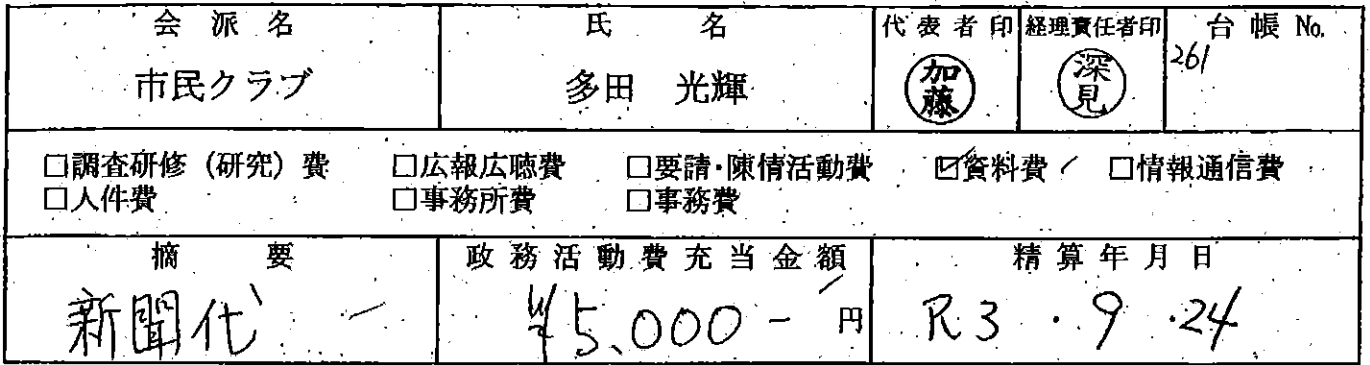 会派名 氏名 代表者印 経理責任者印 台帳No.
市民クラブ 多田 光輝 加藤 深見 261
□調査研修（研究）費 □広報広聴費 □要請・陳情活動費 ☑資料費 □情報通信費
□人件費 □事務所費 □事務費
摘要 政務活動費充当金額 精算年月日
新聞代 ¥5,000- 円 R3・9・24